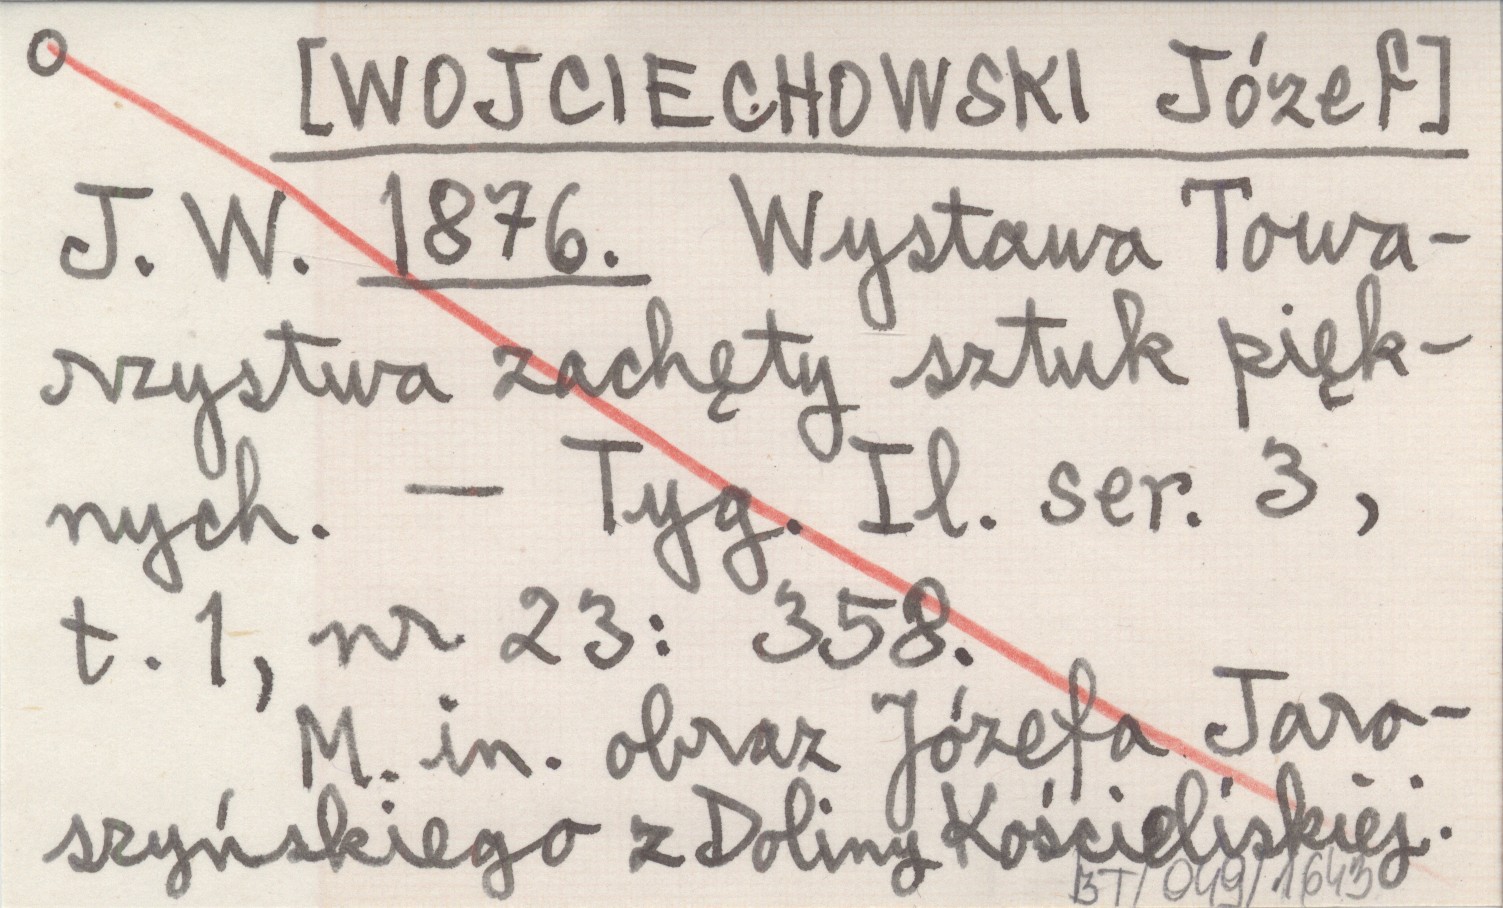 [WOJCIECHOWSKI Józef]
J. W. 1876. Wystawa Towa-
rzystwa zachęty sztuk pięk-
nych. — Tyg. Il. ser. 3,
t. 1, nr 23: 358.
M. in. obraz Józefa Jaro-
szyńskiego z Doliny Kościeliskiej.
BT/049/1643